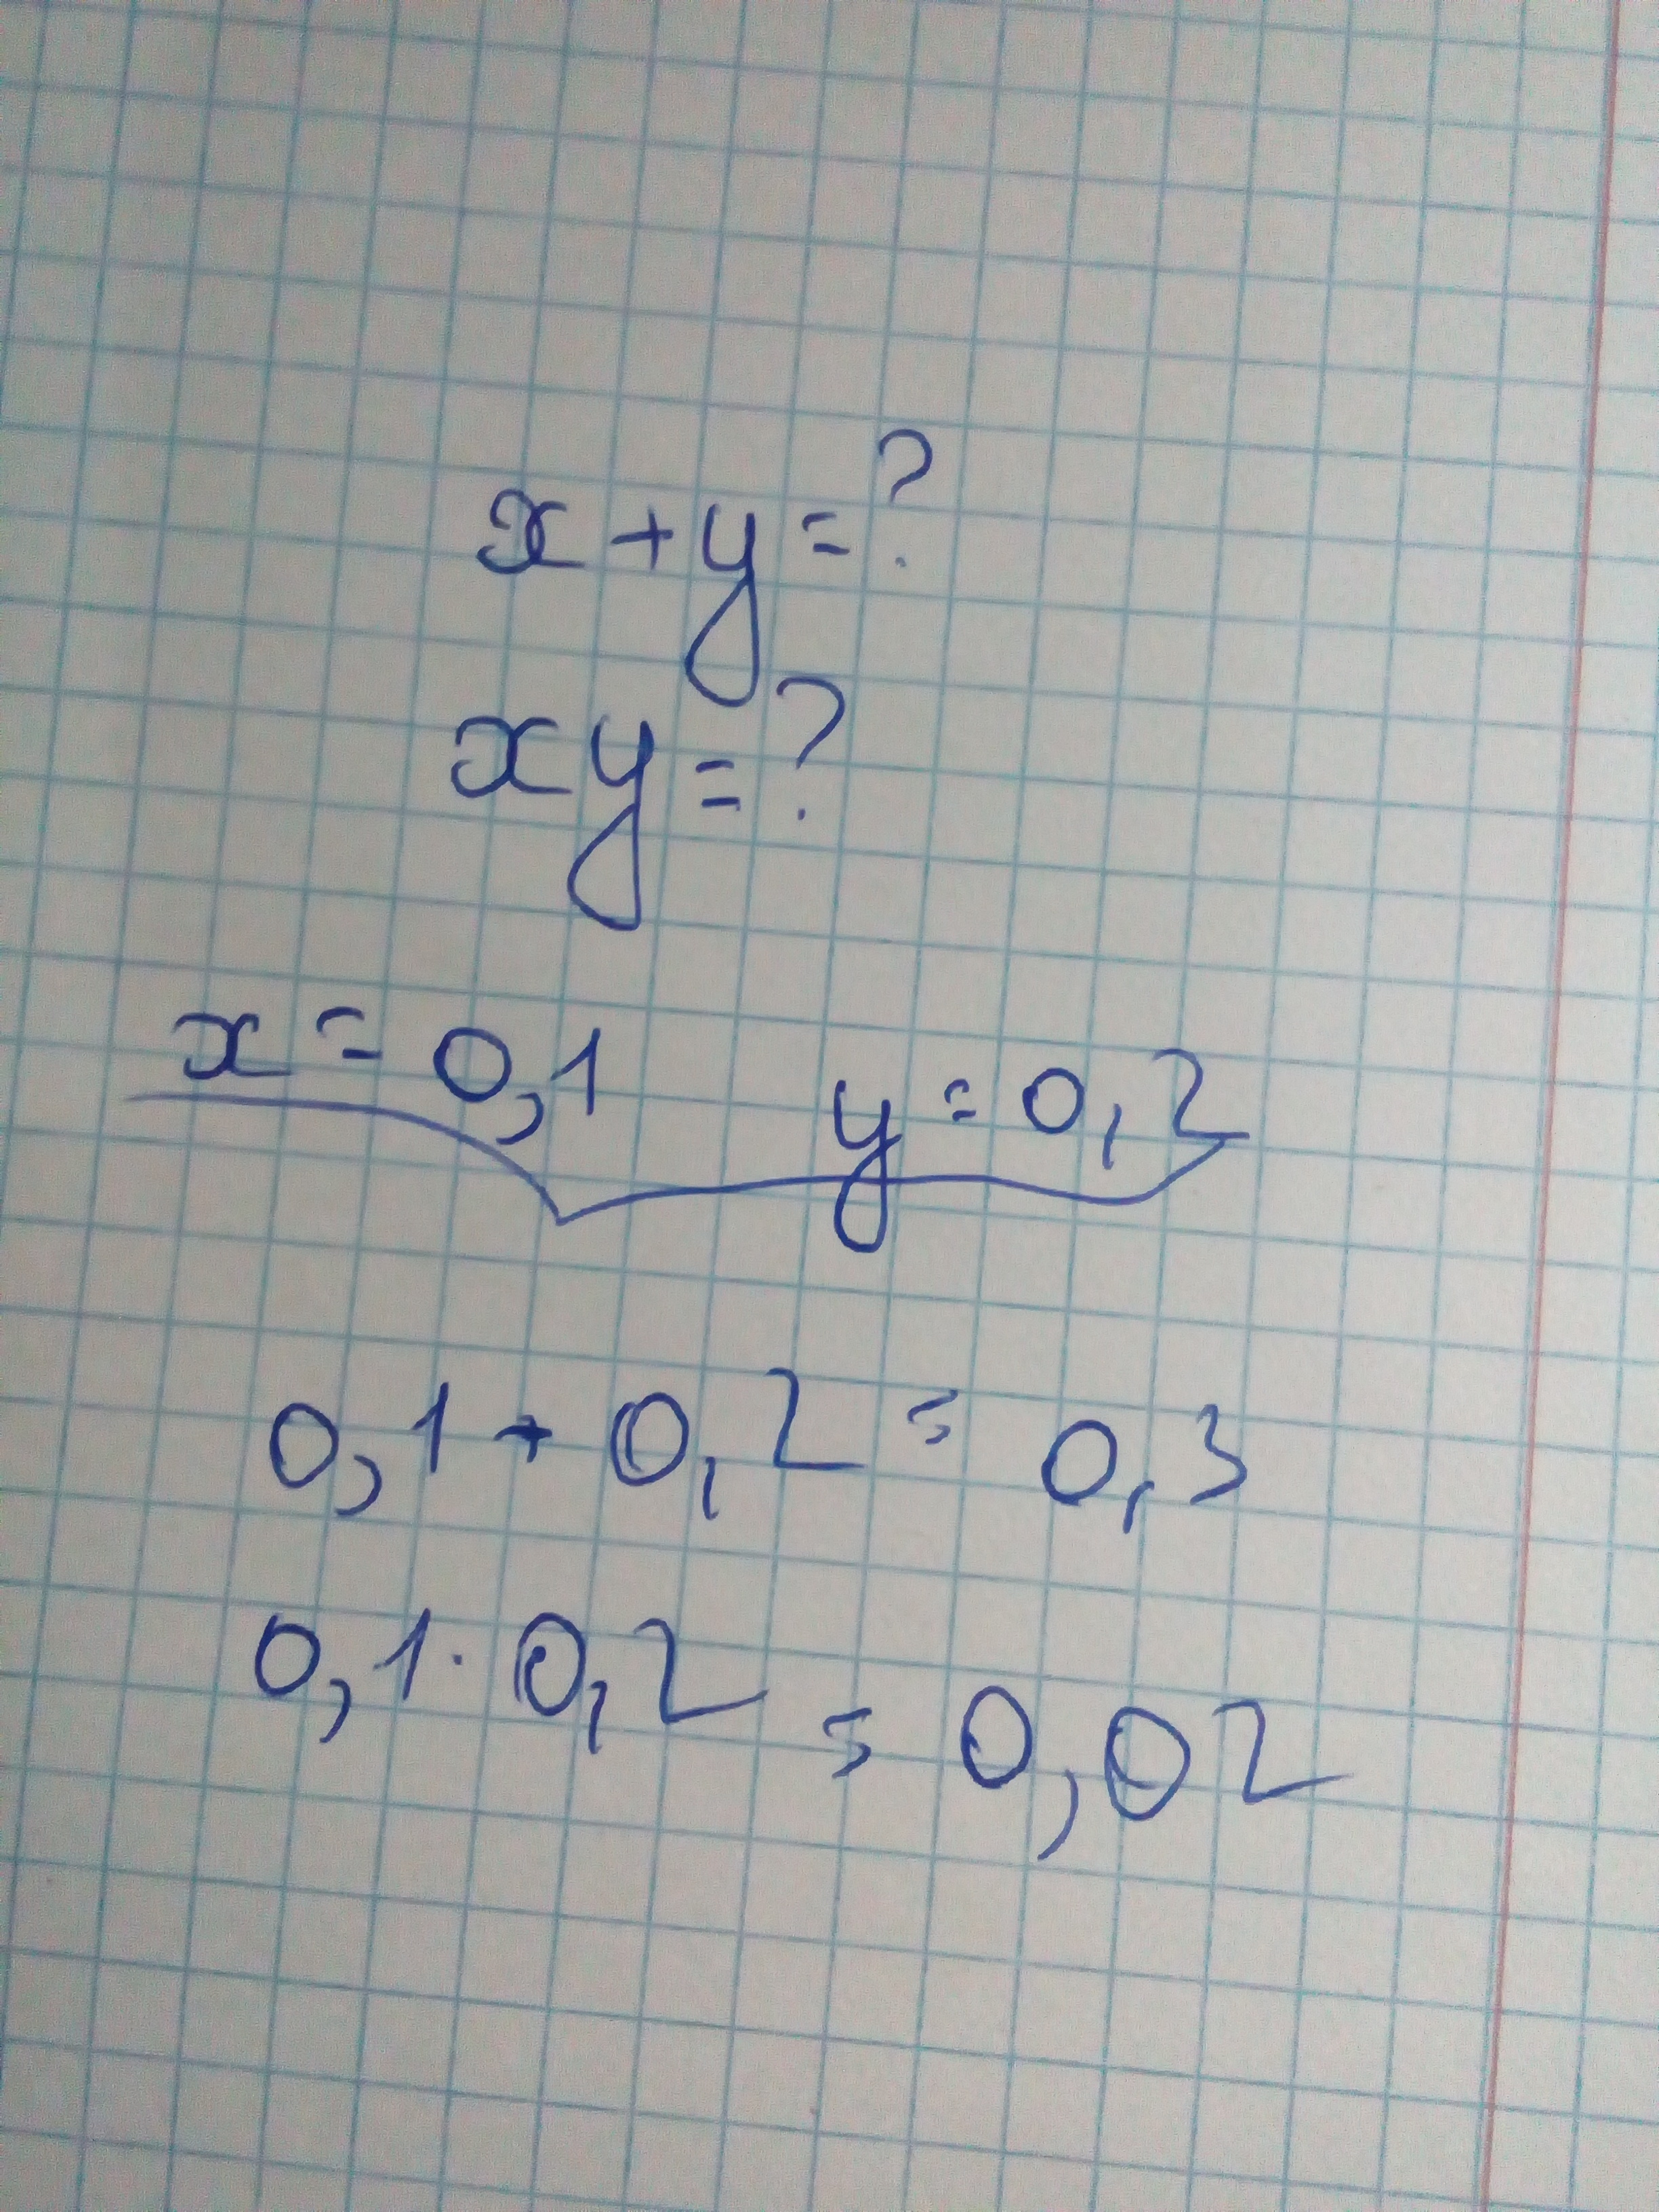 x + y = ?
xy = ?
x = 0,1 y = 0,2
0,1 + 0,2 = 0,3
0,1 · 0,2 = 0,02